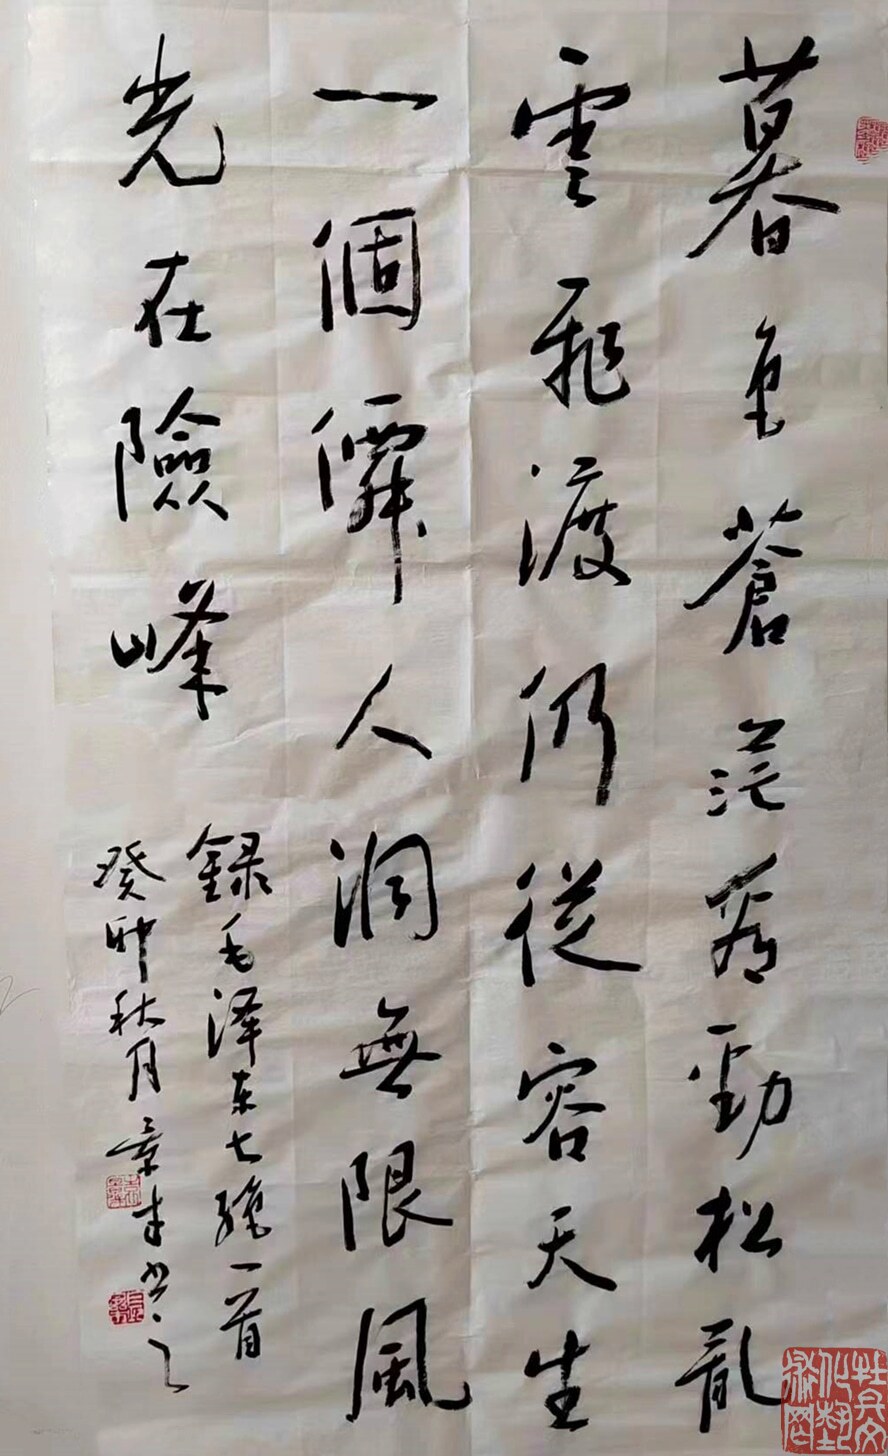 暮色蒼茫看勁松亂
雲飛渡仍從容天生
一個僊人洞無限風
光在險峰
錄毛泽东七絕一首
癸卯秋月景才书之